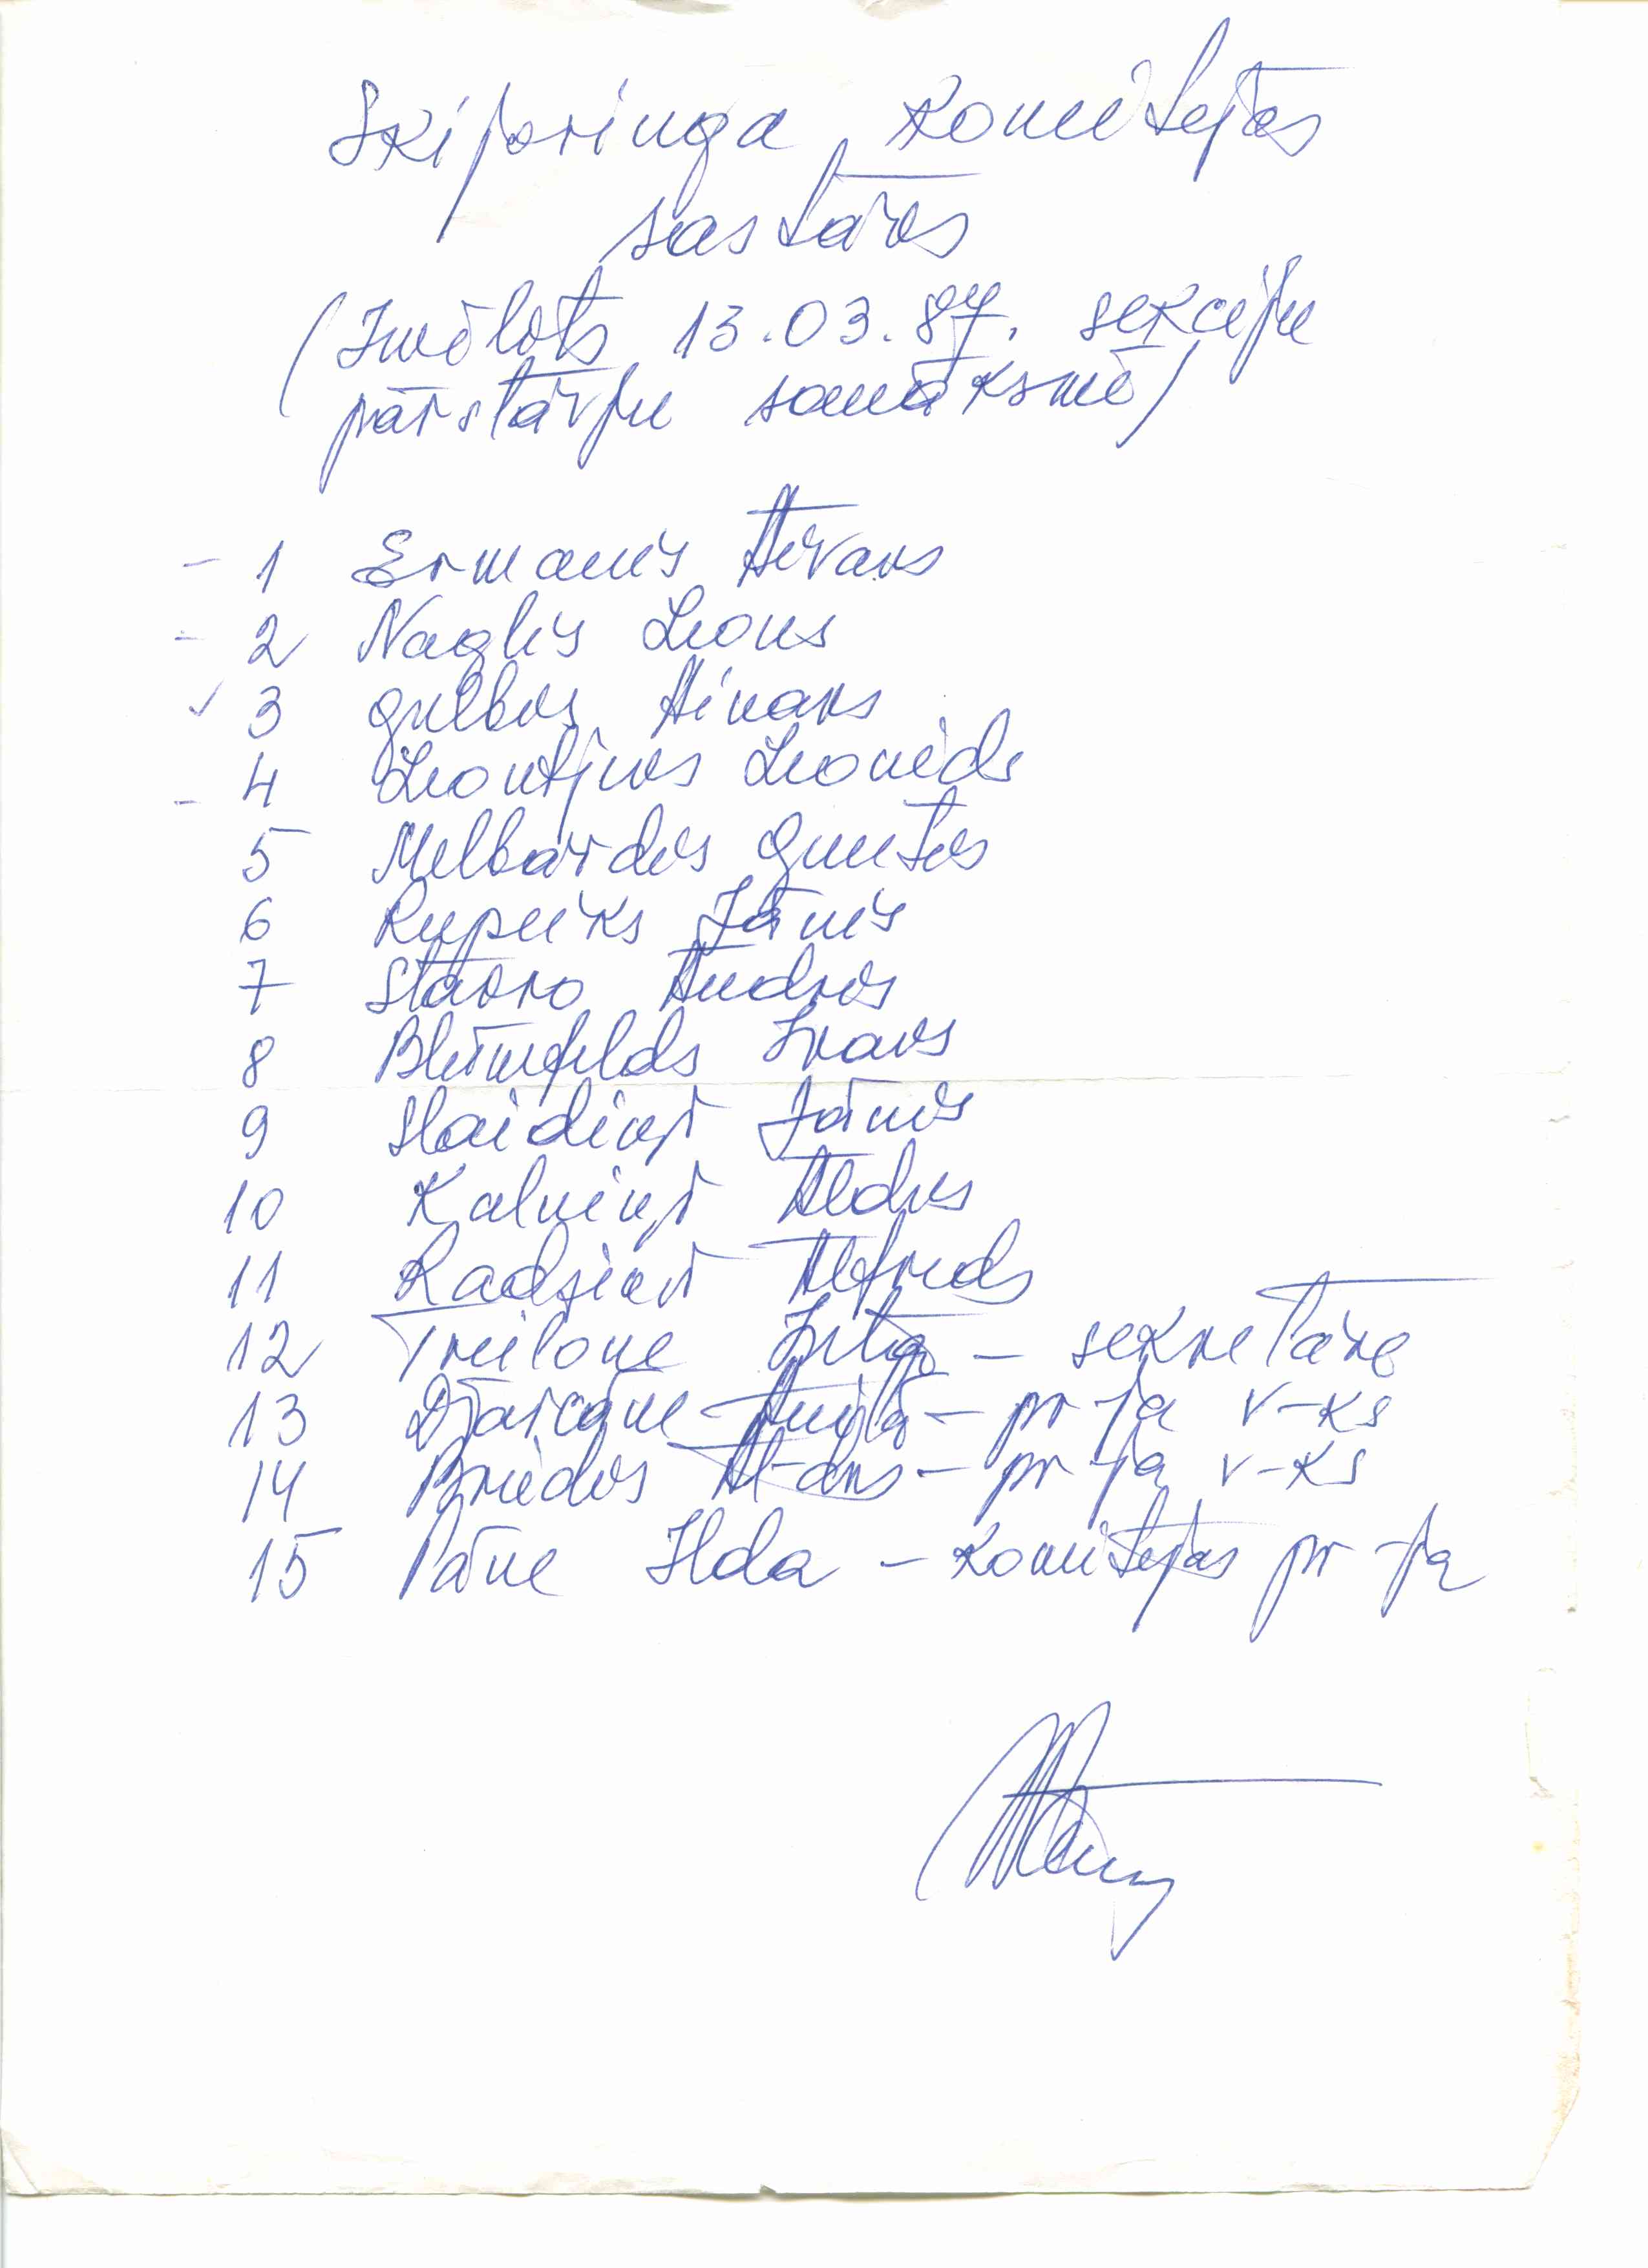 Skijoringa Komitejas
sastāvs
(Ievēlēts 13.03.87. sekciju
pārstāvju sanāksmē)
- 1 Ermanis Aivars
- 2 Naglis Leons
✓ 3 Gulbis Ainars
- 4 Leontjevs Leonids
5 Melbārdis Guntis
6 Rupeiks Jānis
7 Starro Andris
8 Blūmfelds Ivars
9 Slaidiņš Jānis
10 Kalniņš Aldis
11 Radziņš Alfreds
12 Treilone Irita - sekretāre
13 Anita - pr-ja v-ks
14 Briedis Al-drs - pr-ja v-ks
15 Pāne Ilda - Komitejas pr-ja